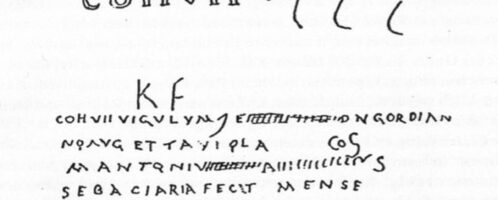 K F
COHVIIVIGVLVM DNGORDIAN
NOAVG ETTAVIPLA COS
MANTONIV
SEBACIARIA FECIT MENSE